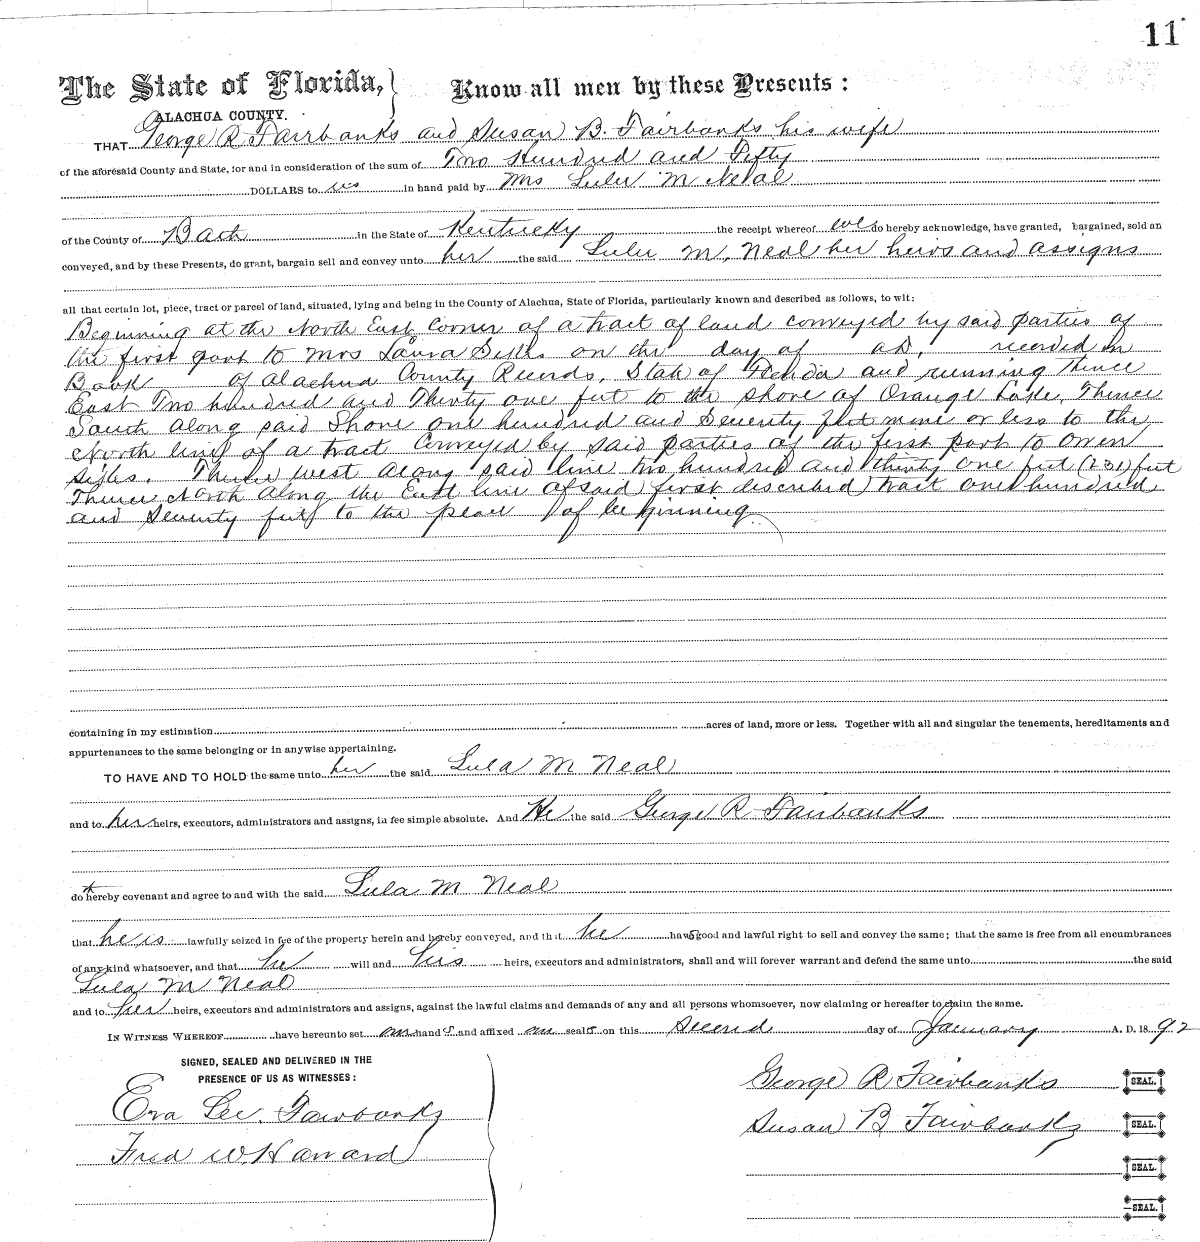 11
The State of Florida, } Know all men by these Presents :
ALACHUA COUNTY.
THAT George R Fairbanks and Susan B. Fairbanks his wife
of the aforesaid County and State, for and in consideration of the sum of Two Hundred and Fifty
DOLLARS to us in hand paid by Mrs Lulu M Neal
of the County of Bath in the State of Kentucky the receipt whereof we do hereby acknowledge, have granted, bargained, sold an
conveyed, and by these Presents, do grant, bargain sell and convey unto her the said Lulu M. Neal her heirs and assigns
all that certain lot, piece, tract or parcel of land, situated, lying and being in the County of Alachua, State of Florida, particularly known and described as follows, to wit:
Beginning at the North East Corner of a tract of land conveyed by said parties of
the first part to Mrs Laura Sikes on the day of AD, recorded in
Book of Alachua County Records, State of Florida and running Thence
East Two hundred and Thirty one feet to the shore of Orange Lake, Thence
South along said Shore one hundred and Seventy feet more or less to the
North line of a tract Conveyed by said parties of the first part to Owen
Sikes. Thence west along said line two hundred and thirty one feet (231) feet
Thence North along the East line of said first described tract one hundred
and Seventy feet to the place of beginning
containing in my estimation acres of land, more or less. Together with all and singular the tenements, hereditaments and
appurtenances to the same belonging or in anywise appertaining.
TO HAVE AND TO HOLD the same unto her the said Lula M Neal
and to her heirs, executors, administrators and assigns, in fee simple absolute. And He the said George R Fairbanks
do hereby covenant and agree to and with the said Lula M Neal
that he is lawfully seized in fee of the property herein and hereby conveyed, and that he has good and lawful right to sell and convey the same; that the same is free from all encumbrances
of any kind whatsoever, and that he will and his heirs, executors and administrators, shall and will forever warrant and defend the same unto the said
Lula M Neal
and to her heirs, executors and administrators and assigns, against the lawful claims and demands of any and all persons whomsoever, now claiming or hereafter to claim the same.
IN WITNESS WHEREOF have hereunto set our hands and affixed our seals on this Second day of January A. D. 18 92
SIGNED, SEALED AND DELIVERED IN THE
PRESENCE OF US AS WITNESSES :
George R Fairbanks SEAL.
Eva Lee Fairbanks
Susan B Fairbanks SEAL.
Fred W. Harvard
SEAL.
SEAL.